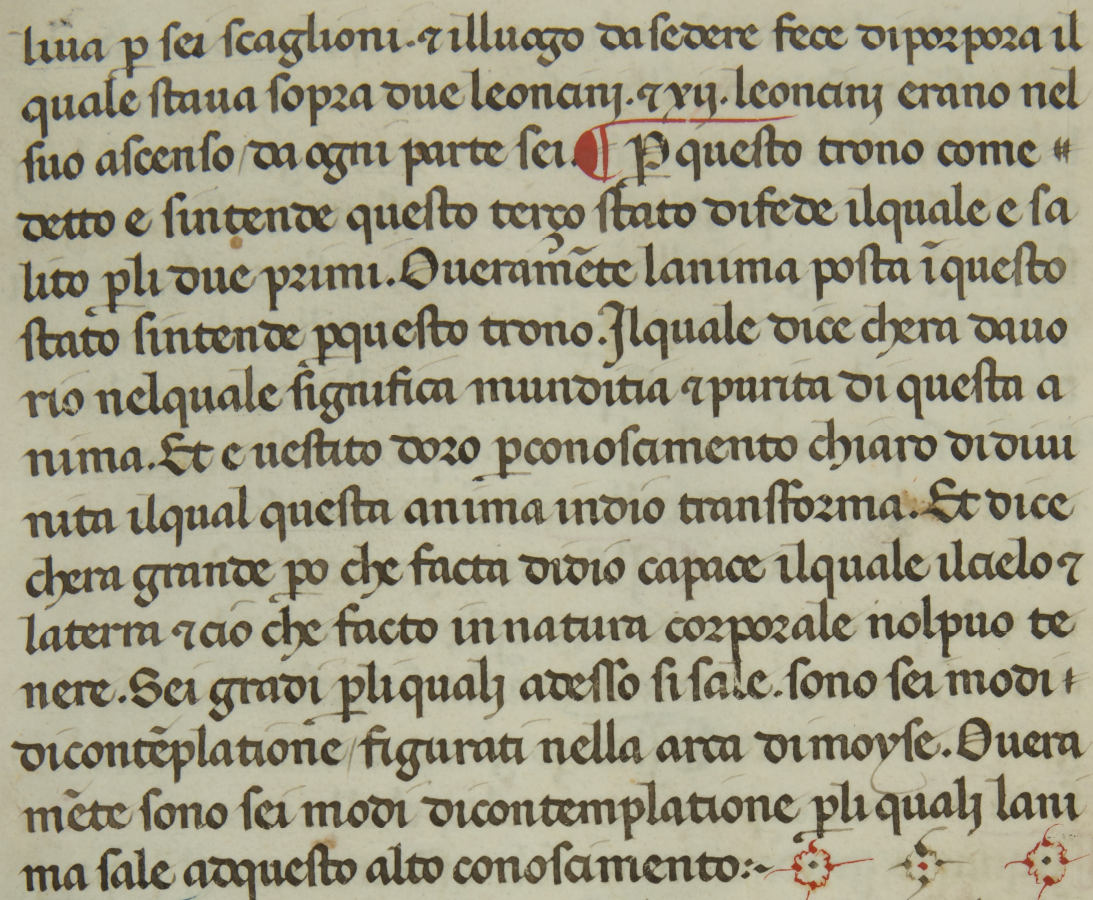 liua ꝑ sei scaglioni. ⁊ illuogo dasedere fece diporpora il
quale staua sopra due leoncinj. ⁊ xij. leoncinj erano nel
suo ascenso / da ogni parte sei. ¶ Ꝑ questo trono come
detto e sintende questo terço stato difede ilquale e sa
lito ꝑli due primi. Oueram̄ēte lanima posta ī questo
stato sintende ꝑquesto trono. Ilquale dice chera dauo
rio nelquale significa munditia ⁊ purita di questa a
nima. Et e uestito doro ꝑconoscimento chiaro didiui
nita ilqual questa anima indio transforma. Et dice
chera grande ꝑo che facta didio capace ilquale ilcielo ⁊
laterra ⁊ cio che facto in natura corporale nolpuo te
nere. Sei gradi ꝑliqualj adesso si sale. sono sei modi
dicontēplatione / figurati nella arca di moyse. Ouera
mēte sono sei modi dicontemplatione ꝑli qualj lani
ma sale adquesto alto conoscimento:~